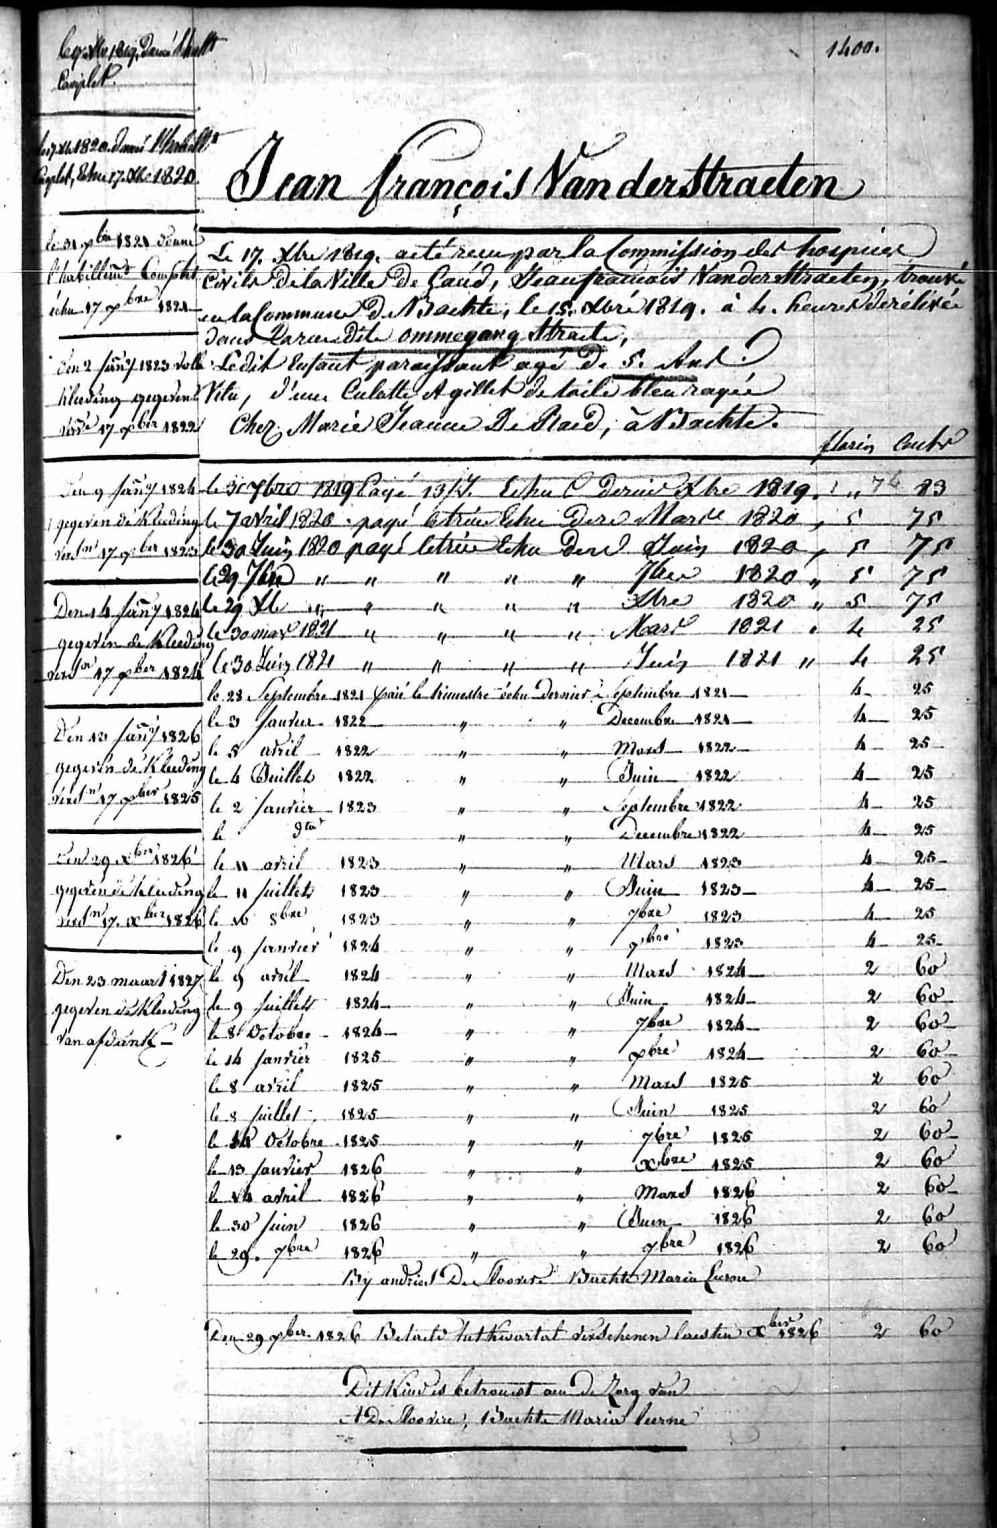 1400.
le 9 Xbre 1819, donné l'habillt
Complet.
le 17 Xbre 1820 donné l'habillt
Complet, Echu 17 Xbre 1820
le 31 xbre 1821 donné
l'habillemt Complet
échu 17 xbre 1821
Den 2 Janÿ 1823 volle
kleeding gegeven
verse 17 xber 1822
Den 9 Janÿ 1824
gegeven de Kleeding
versn 17 xber 1823
Den 14 Janÿ 1824
gegeven de Kleeding
versn 17 xber 1824
Den 13 Janÿ 1826
gegeven de Kleeding
versn 17 xber 1825
Den 29 xber 1826
gegeven de kleeding
versn 17. xber 1826
Den 23 maart 1827
gegeven de Kleeding
van afdank
Jean françois Vanderstraeten
Le 17. Xbre 1819. a été reçu par la Commission des hospices
Civils de la Ville de Gand, Jean françois Vanderstraeten, trouvé
en la Commune de Bachte, le 15. Xbre 1819. à 4. heures de relivée
dans la rue dite ommegang straete,
Le dit Enfant paraissant agé de 5. Ans
Vêtu, d'une Culotte & gillet de toile bleu rayée
Chez Marie Jeanne De Raed, à Bachte.
florin Cents
le 31 Xbre 1819 Payé 13/J. Echu le dernier Xbre 1819. " 74 83
le 7 avril 1820 payé le trice Echu dere Mars 1820, 5 75
le 30 Juin 1820 payé le trice Echu dere Juin 1820, 5 75
le 29 7bre " " " " " 7bre 1820 " 5 75
le 29 Xbre " " " " " Xbre 1820 " 5 75
le 30 mars 1821 " " " " Mars 1821 " 4 25
le 30 Juin 1821 " " " " Juin 1821 " 4 25
le 28 Septembre 1821 paié le trimestre échu dernier Septembre 1821 4 25
le 3 Janvier 1822 " " Decembre 1821 4 25
le 5 avril 1822 " " Mars 1822 4 25
le 4 Juillet 1822 " " Juin 1822 4 25
le 2 Janvier 1823 " " Septembre 1822 4 25
le dto " " Decembre 1822 4 25
le 11 avril 1823 " " Mars 1823 4 25
le 11 juillet 1823 " " Juin 1823 4 25
le 10 8bre 1823 " " 7bre 1823 4 25
le 9 janvier 1824 " " xbre 1823 4 25
le 9 avril 1824 " " Mars 1824 2 60
le 9 juillet 1824 " " Juin 1824 2 60
le 8 Octobre 1824 " " 7bre 1824 2 60
le 14 janvier 1825 " " xbre 1824 2 60
le 8 avril 1825 " " Mars 1825 2 60
le 8 juillet 1825 " " Juin 1825 2 60
le 14 Octobre 1825 " " 7bre 1825 2 60
le 13 janvier 1826 " " xbre 1825 2 60
le 14 avril 1826 " " Mars 1826 2 60
le 30 juin 1826 " " Juin 1826 2 60
le 29. 7bre 1826 " " 7bre 1826 2 60
By andries De Mooere Bachte Maria Leerne
Den 29 xber 1826 Betaeld het kwartal verschenen laesten xber 1826 2 60
Dit Kind is betrouwt aen de Zorg van
A De Moovere, Bachte Maria leerne